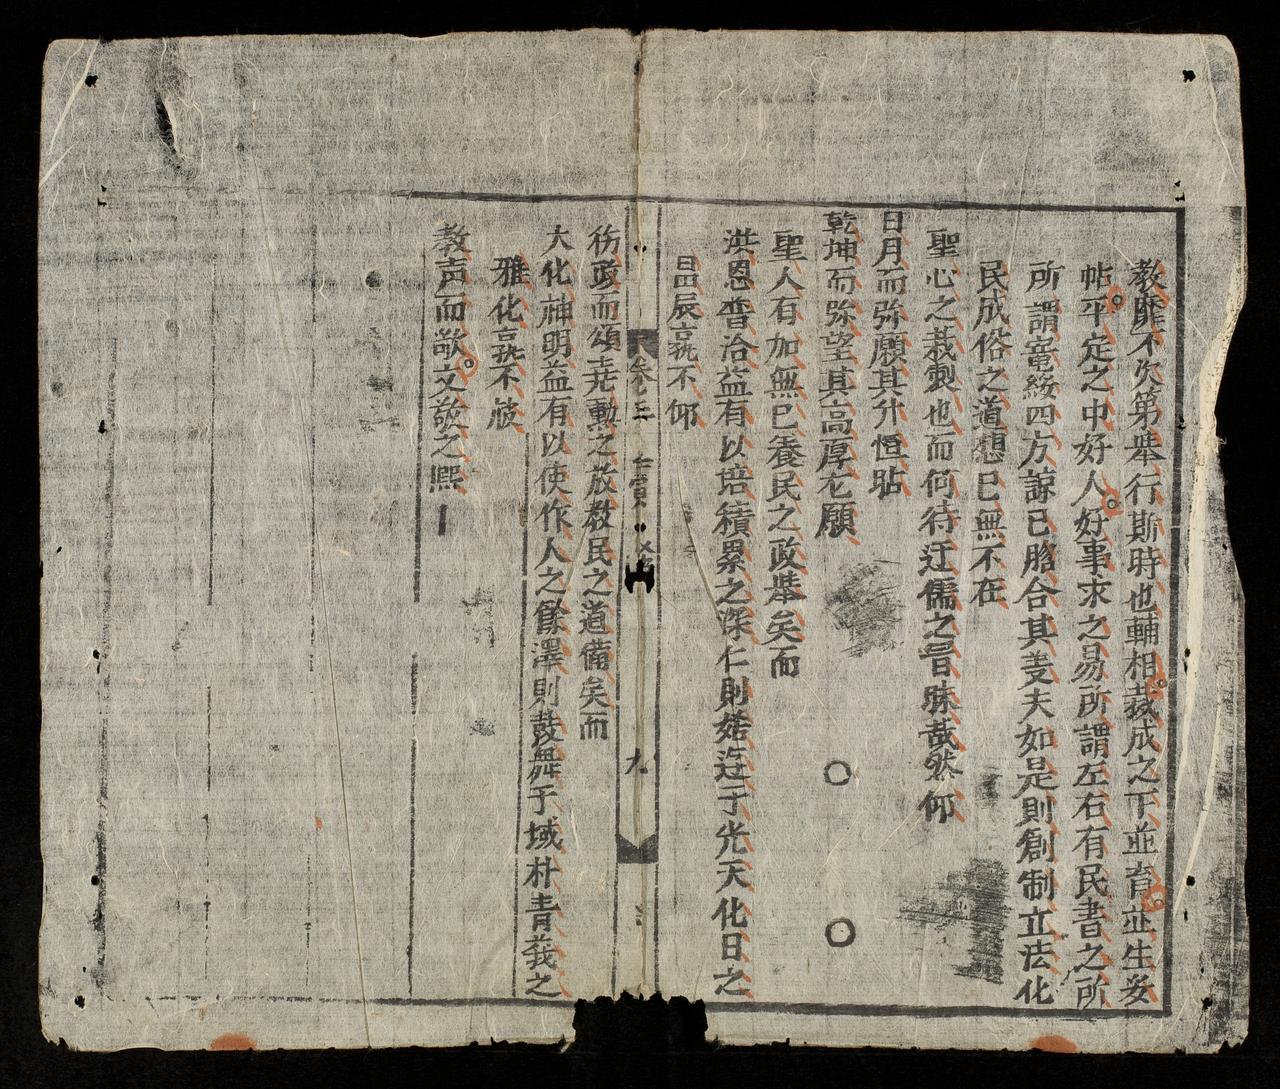 教靡不次第舉行斯時也輔相裁成之下並育並生妥
帖平定之中好人好事求之易所謂左右有民書之所
所謂寵綏四方諒已脗合其妄夫如是則創制立法化
民成俗之道想已無不在
聖心之裁製也而何待迂儒之晋昧哉然仰
日月而弥願其升恒貼
乾坤而弥望其高厚尤願
聖人有加無已養民之政举矣而
洪恩普洽益有以培積累之深仁則嬉遊于光天化日之
辰孰不仰
政而頌堯勳之放教民之道備矣而
大化神明益有以使作人之餘澤則鼓舞于域朴青莪之
雅化孰不
教声而歌文敬之熙
卷三
九